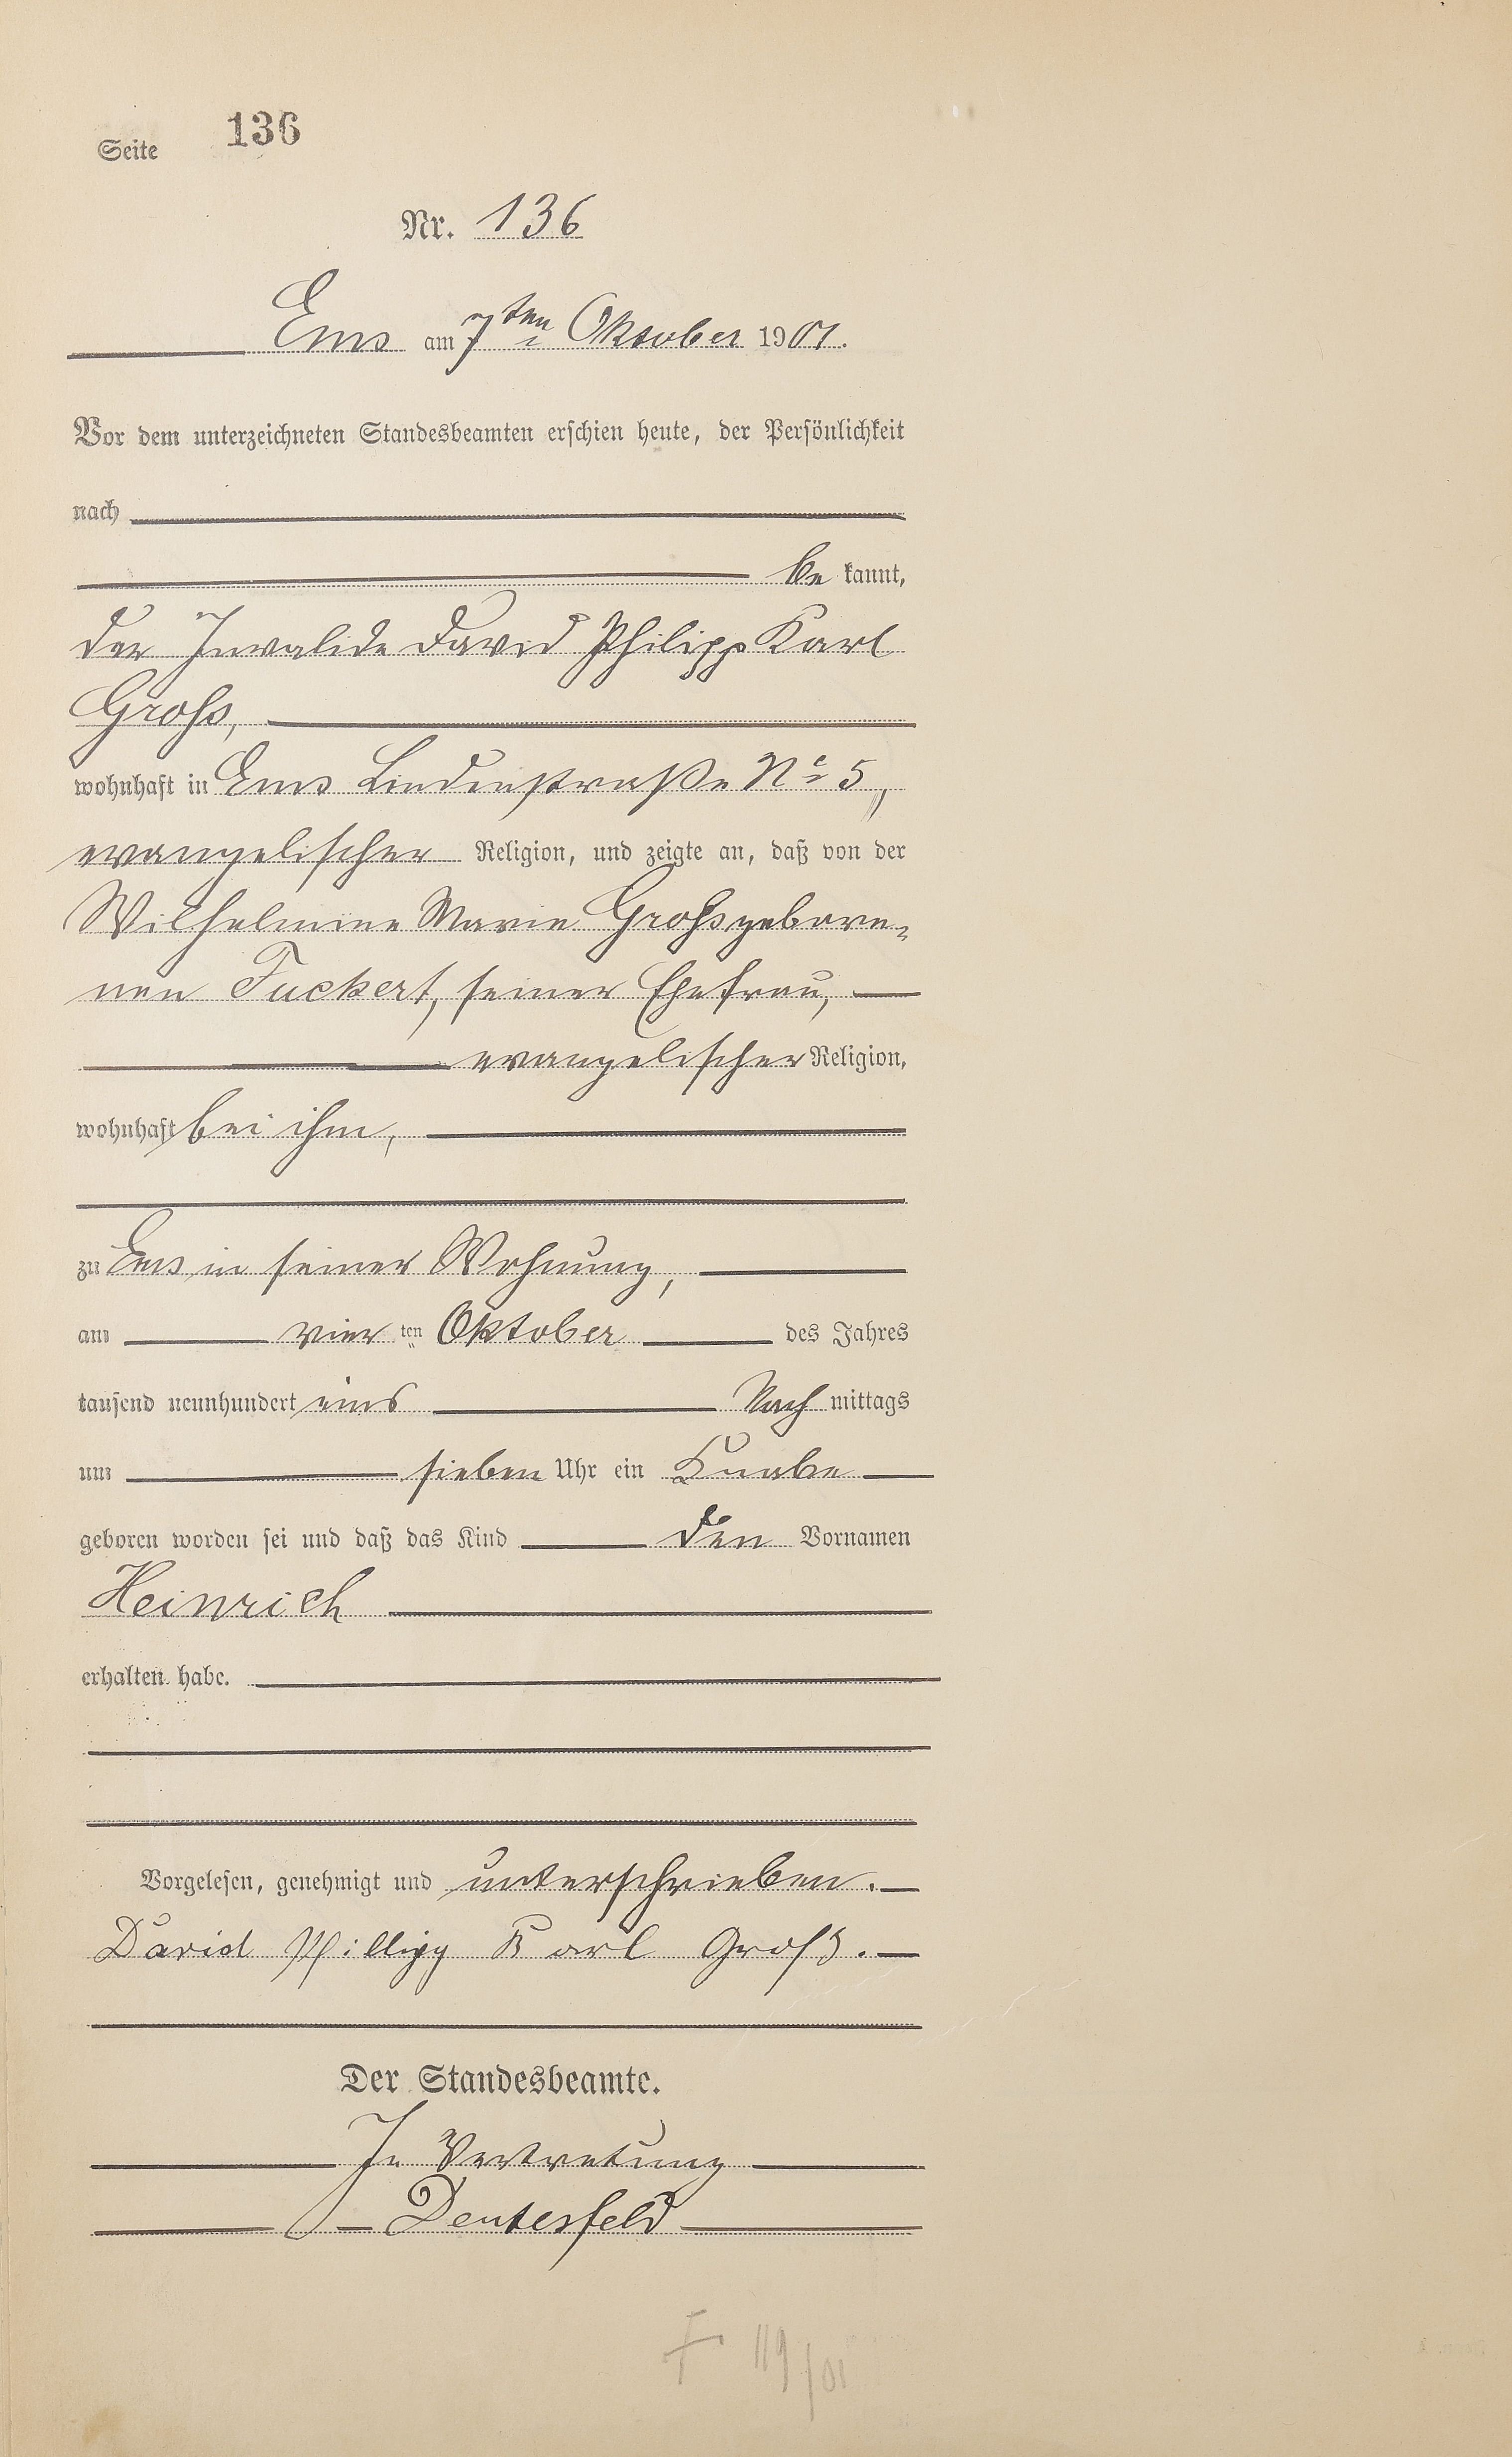 Seite 136
Nr. 136
Ems am 7ten Oktober 1901.
Vor dem unterzeichneten Standesbeamten erschien heute, der Persönlichkeit
nach
be kannt,
der Invalide David Philipp Karl
Groß,
wohnhaft in Ems Lindenstraße No 5,
evangelischer Religion, und zeigte an, daß von der
Wilhelmine Marie Groß gebore-
nen Tuckert, seiner Ehefrau,
evangelischer Religion,
wohnhaft bei ihm,
zu Ems in seiner Wohnung,
am vier ten Oktober des Jahres
tausend neunhundert eins Nach mittags
um sieben Uhr ein Knabe
geboren worden sei und daß das Kind den Vornamen
Heinrich
erhalten habe.
Vorgelesen, genehmigt und unterschrieben.
David Phillipp Karl Groß.
Der Standesbeamte.
In Vertretung
Deutesfeld
† 119/01